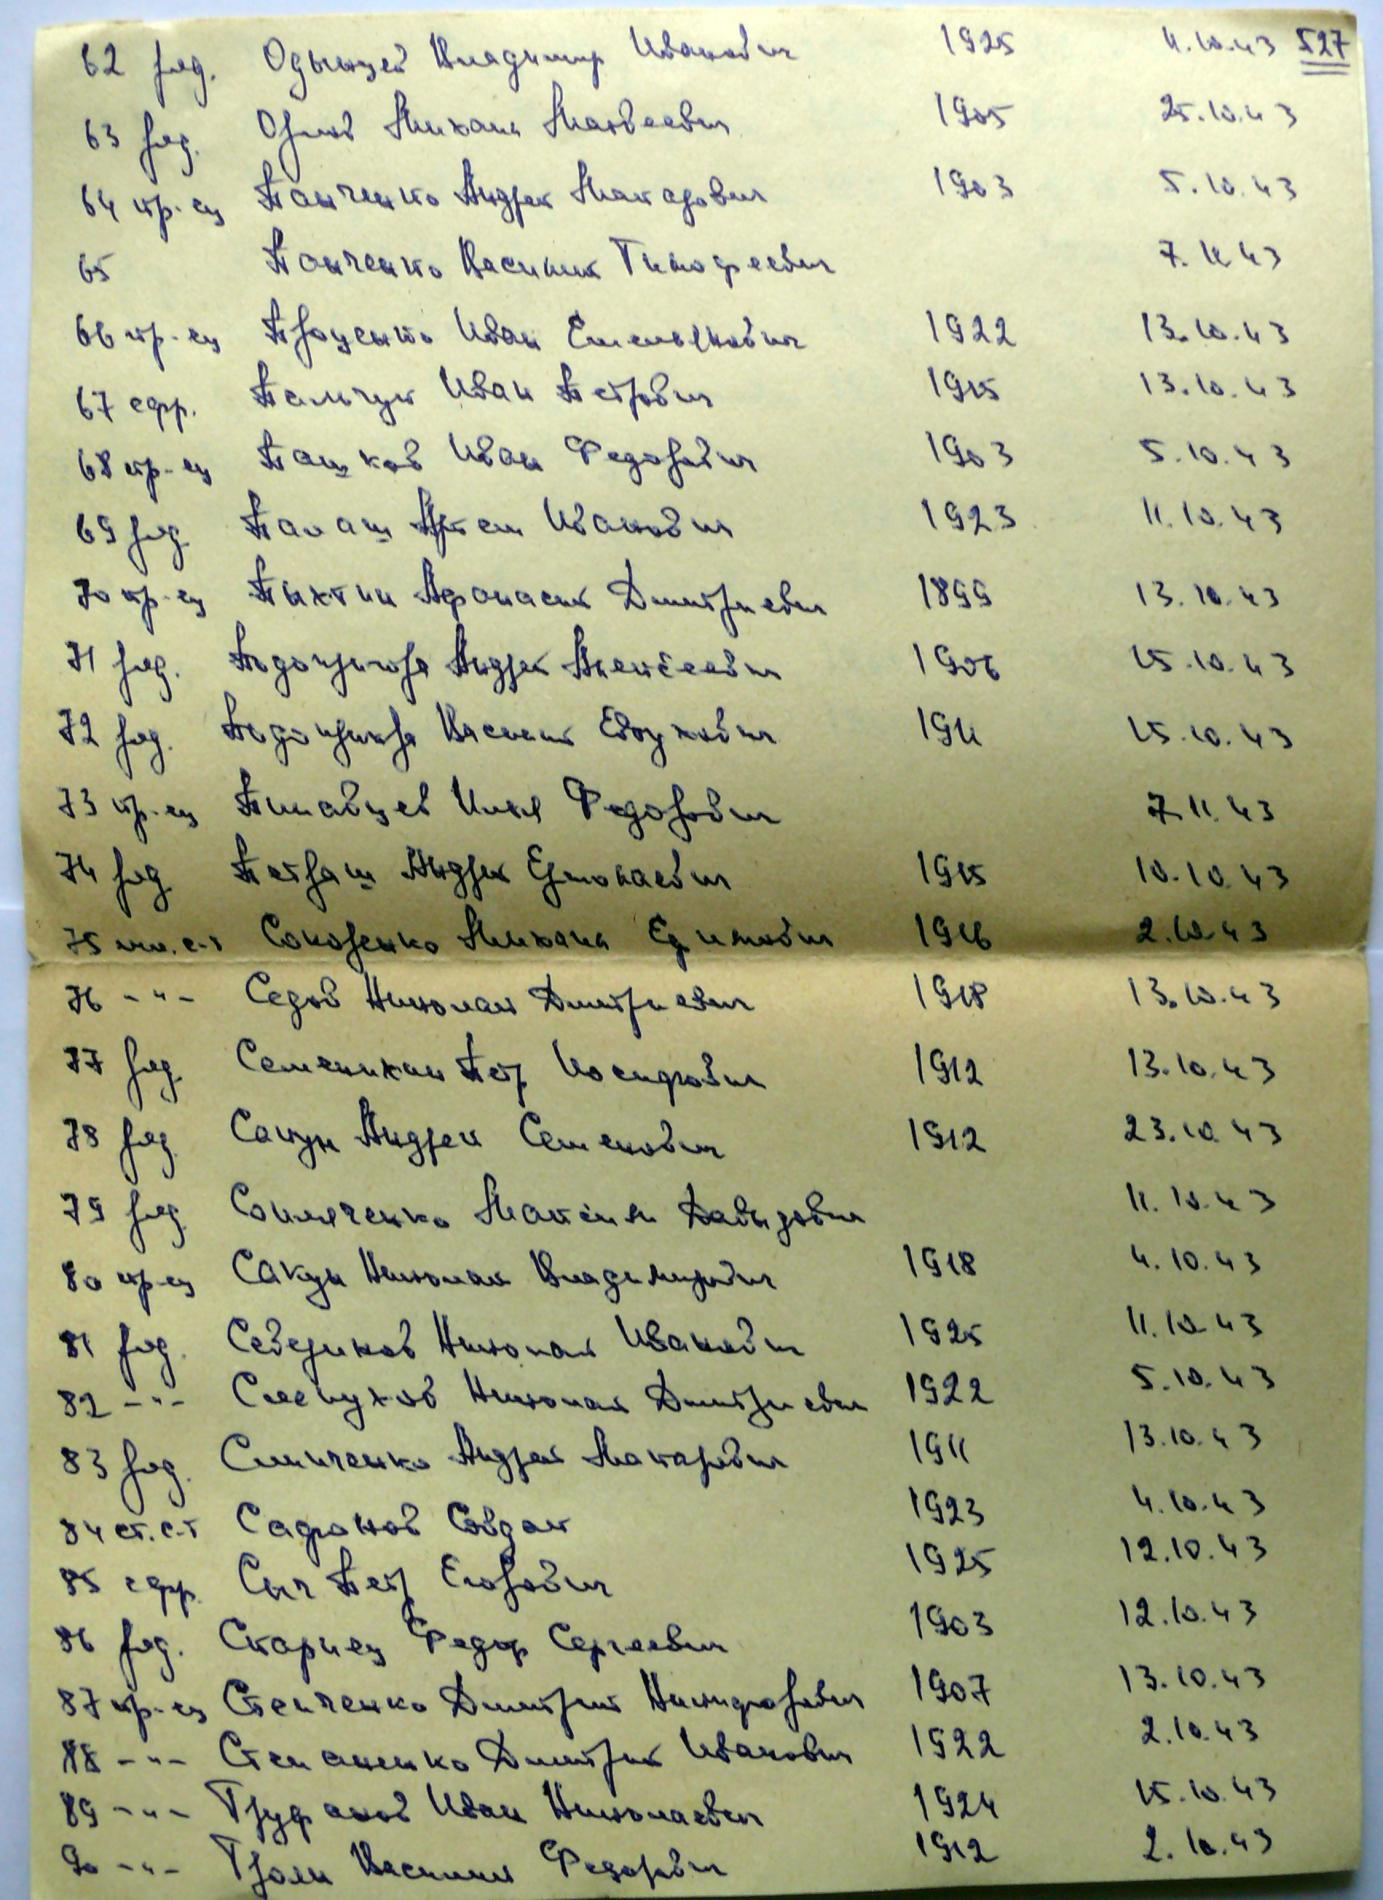 62 ряд. Одынцев Владимир Иванович 1925 11.10.43 527
63 ряд. Орлов Михаил Матвеевич 1905 25.10.43
64 кр-ец Панченко Андрей Макарович 1903 5.10.43
65 Панченко Василий Тимофеевич 7.11.43
66 кр-ец Проценко Иван Емельянович 1922 13.10.43
67 ефр. Пальчук Иван Петрович 1915 13.10.43
68 кр-ец Пашков Иван Федорович 1903 5.10.43
69 ряд Палаш Артем Иванович 1923 11.10.43
70 кр-ец Пыхтин Афанасий Дмитриевич 1899 13.10.43
71 ряд. Андрей Алексеевич 1906 15.10.43
72 ряд. Василий 1911 15.10.43
73 кр-ец Илья Федорович 7.11.43
74 ряд Петраш Андрей Ермолаевич 1915 10.10.43
75 мл. с-т Сокоренко Михаил Ефимович 1916 2.10.43
76 -"- Седов Николай Дмитриевич 1918 13.10.43
77 ряд. Семенихин Петр Иосифович 1912 13.10.43
78 ряд Сакун Андрей Семенович 1912 23.10.43
79 ряд Максим Давидович 11.10.43
80 кр-ец Сакун Николай Владимирович 1918 4.10.43
81 ряд. Севериков Николай Иванович 1925 11.10.43
82 -"- Слепухов Николай Дмитриевич 1922 5.10.43
83 ряд. Слипченко Андрей Макарович 1911 13.10.43
84 ст. с-т Сафонов 1923 4.10.43
85 ефр. Сыч Петр Егорович 1925 12.10.43
86 ряд. Стариец Федор Сергеевич 1903 12.10.43
87 кр-ец Степченко Дмитрий Никифорович 1907 13.10.43
88 -"- Степаненко Дмитрий Иванович 1922 2.10.43
89 -"- Труфанов Иван Николаевич 1924 15.10.43
90 -"- Василий Федорович 1912 2.10.43